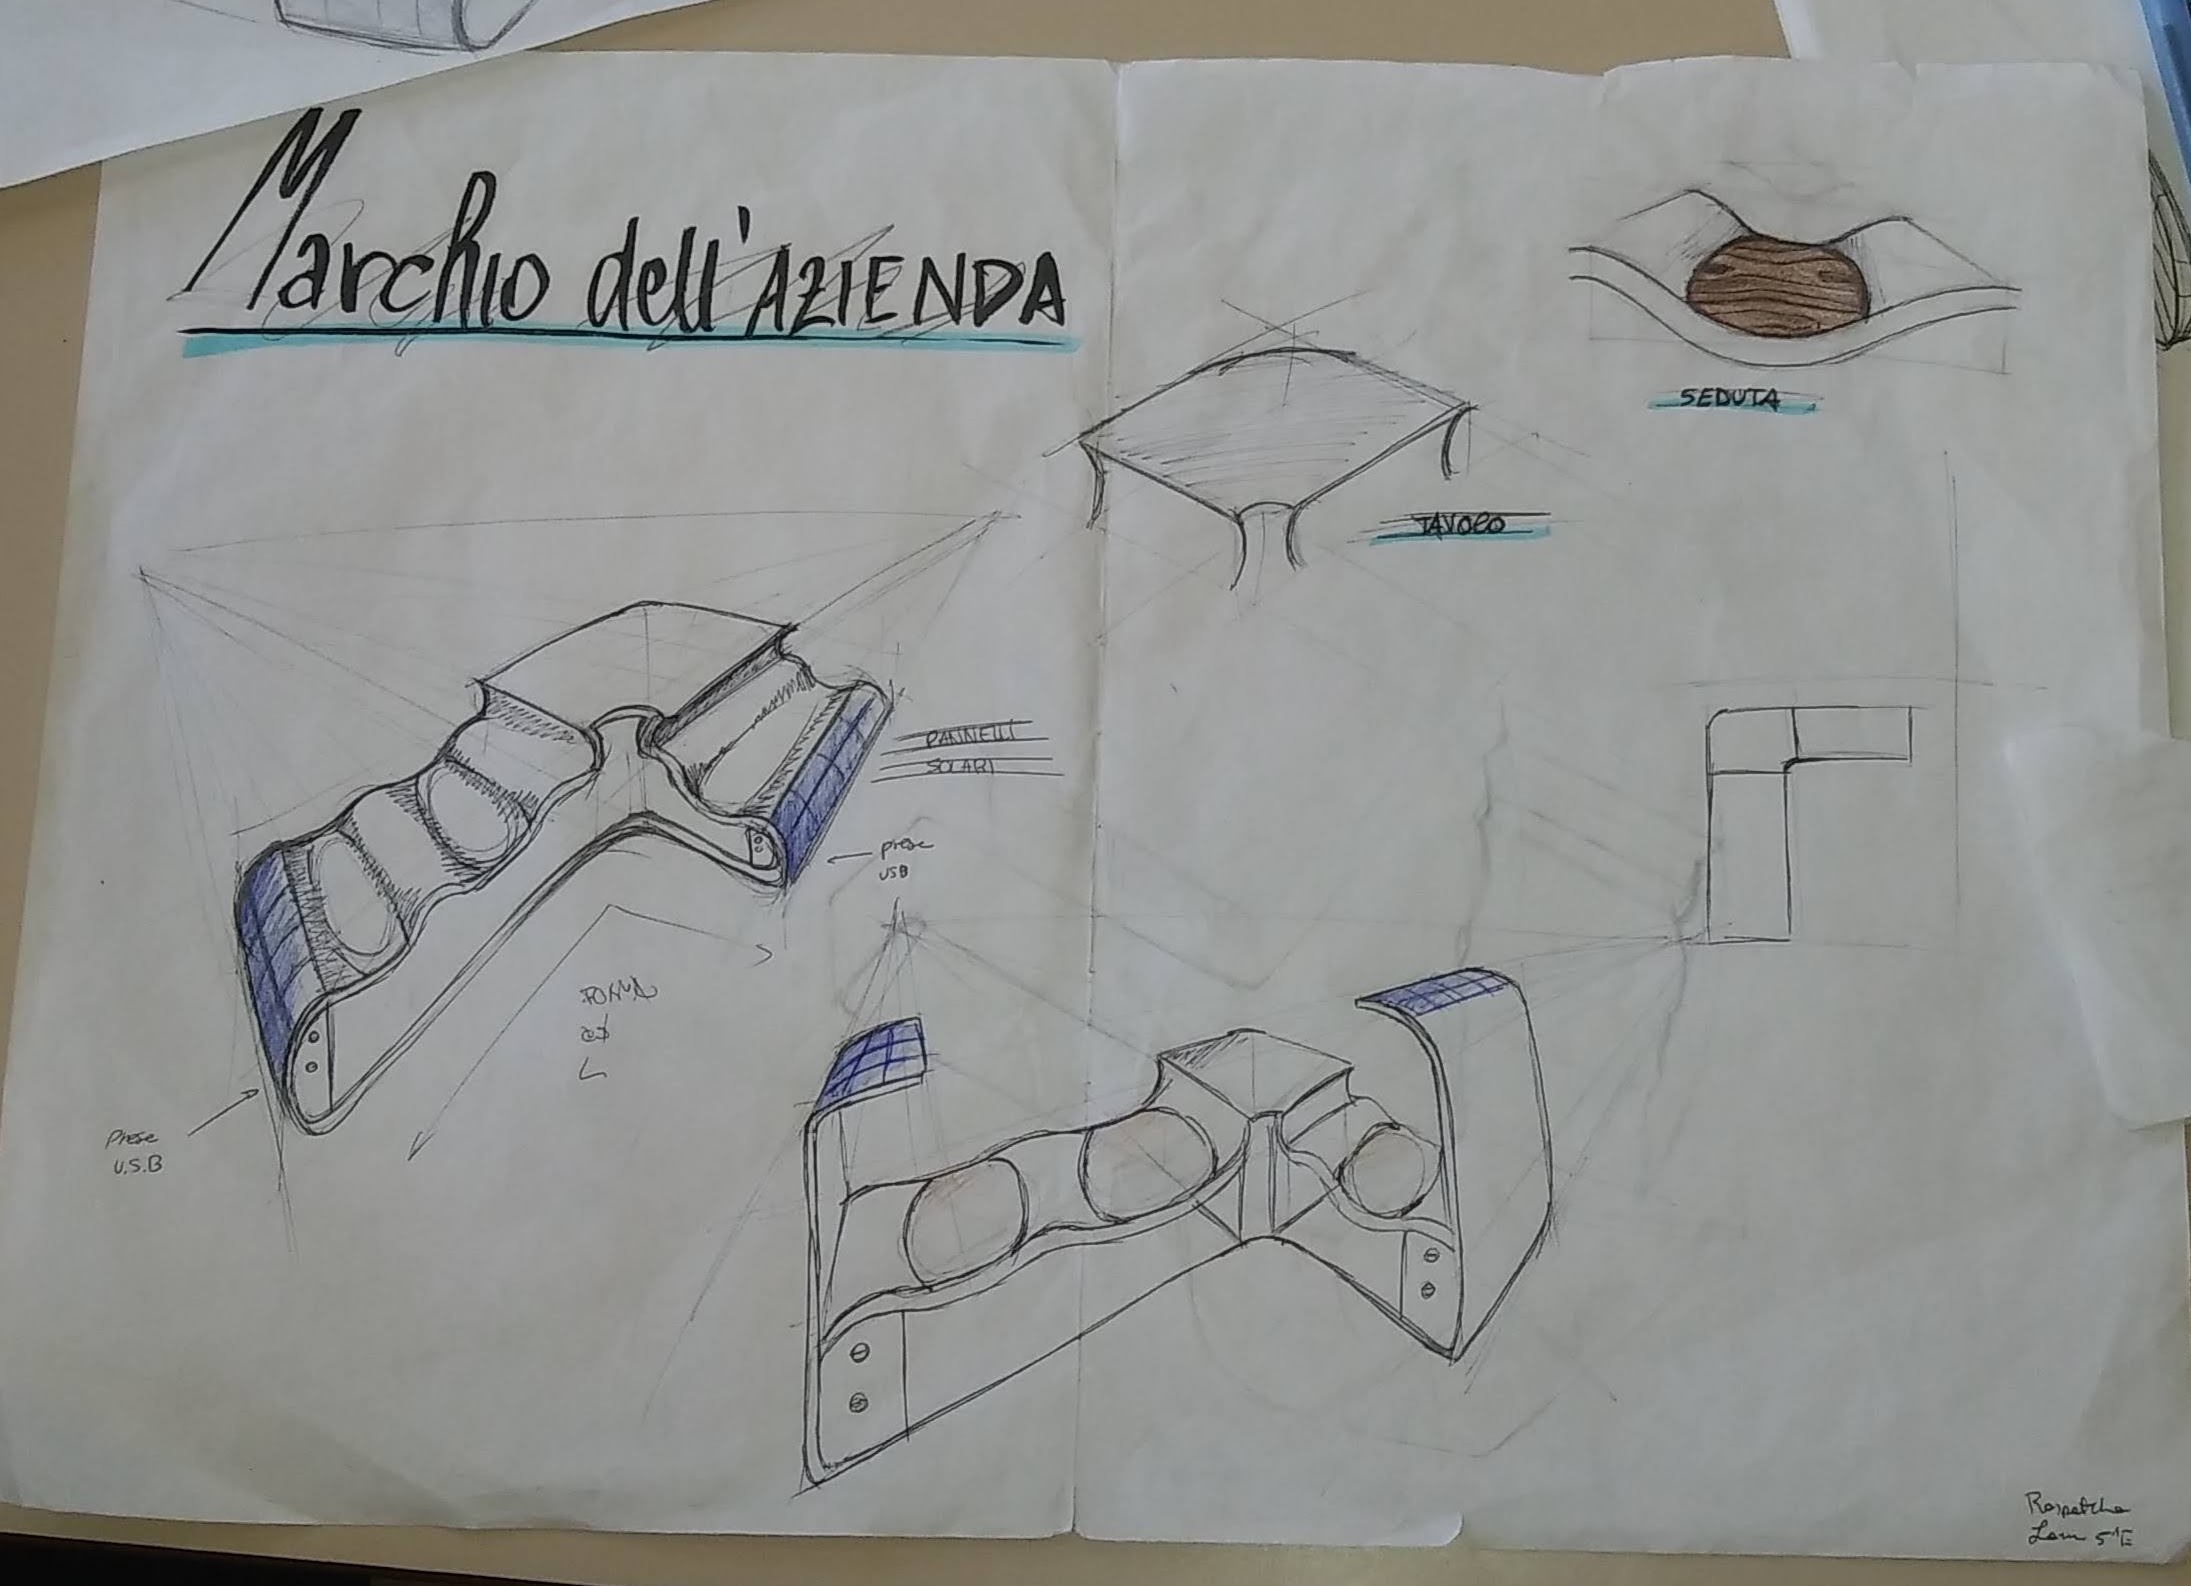 Marchio dell'AZIENDA
SEDUTA
TAVOLO
PANNELLI
SOLARI
prese
USB
FORMA
L
Prese
U.S.B
5^E